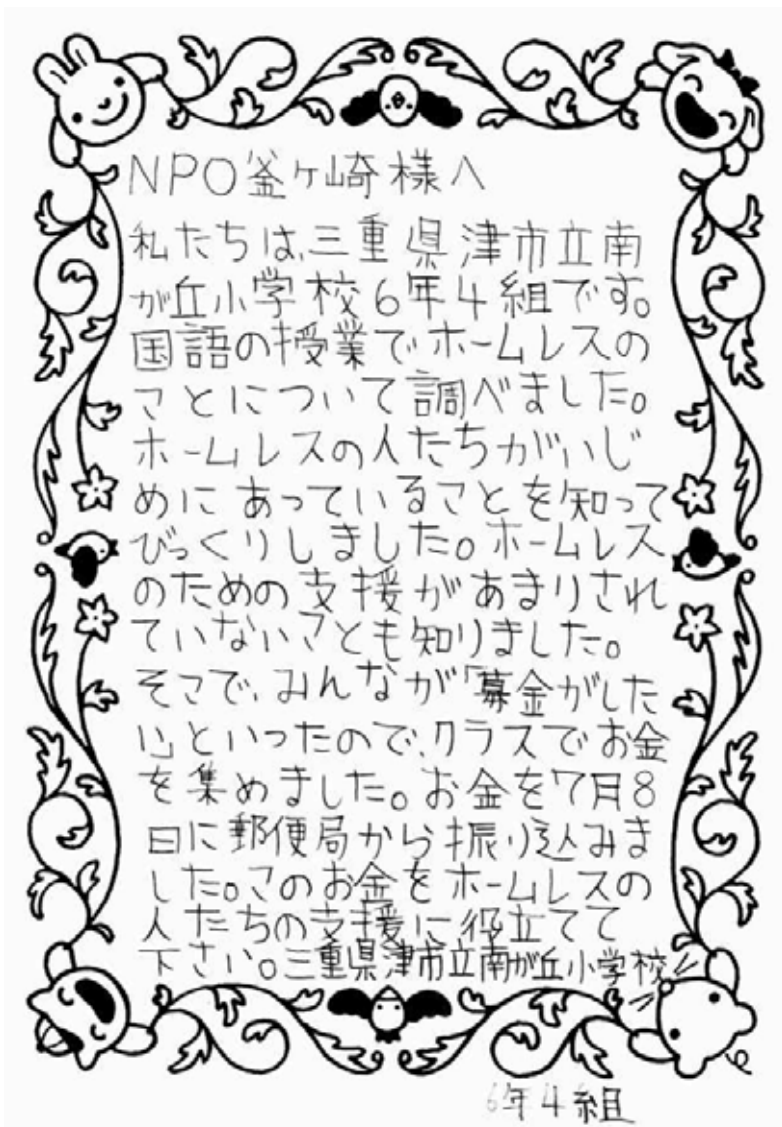 NPO釜ヶ崎様へ
私たちは、三重県津市立南
が丘小学校6年4組です。
国語の授業でホームレスの
ことについて調べました。
ホームレスの人たちがいじ
めにあっていることを知って
びっくりしました。ホームレス
のための支援があまりされ
ていないことも知りました。
そこで、みんなが「募金がした
い」といったので、クラスでお金
を集めました。お金を7月8
日に郵便局から振り込みま
した。このお金をホームレスの
人たちの支援に役立てて
下さい。三重県津市立南が丘小学校
6年4組